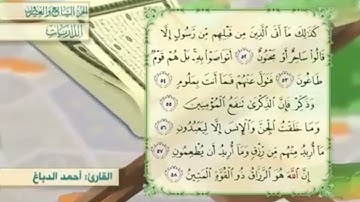 الجزء السابع والعشرون
الذاريات
كَذَٰلِكَ مَا أَتَى الَّذِينَ مِن قَبْلِهِم مِّن رَّسُولٍ إِلَّا
قَالُوا سَاحِرٌ أَوْ مَجْنُونٌ ٥٢ أَتَوَاصَوْا بِهِ بَلْ هُمْ قَوْمٌ
طَاغُونَ ٥٣ فَتَوَلَّ عَنْهُمْ فَمَا أَنتَ بِمَلُومٍ ٥٤
وَذَكِّرْ فَإِنَّ الذِّكْرَىٰ تَنفَعُ الْمُؤْمِنِينَ ٥٥
وَمَا خَلَقْتُ الْجِنَّ وَالْإِنسَ إِلَّا لِيَعْبُدُونِ ٥٦
مَا أُرِيدُ مِنْهُم مِّن رِّزْقٍ وَمَا أُرِيدُ أَن يُطْعِمُونِ ٥٧
إِنَّ اللَّهَ هُوَ الرَّزَّاقُ ذُو الْقُوَّةِ الْمَتِينُ ٥٨
القارئ: أحمد الدباغ